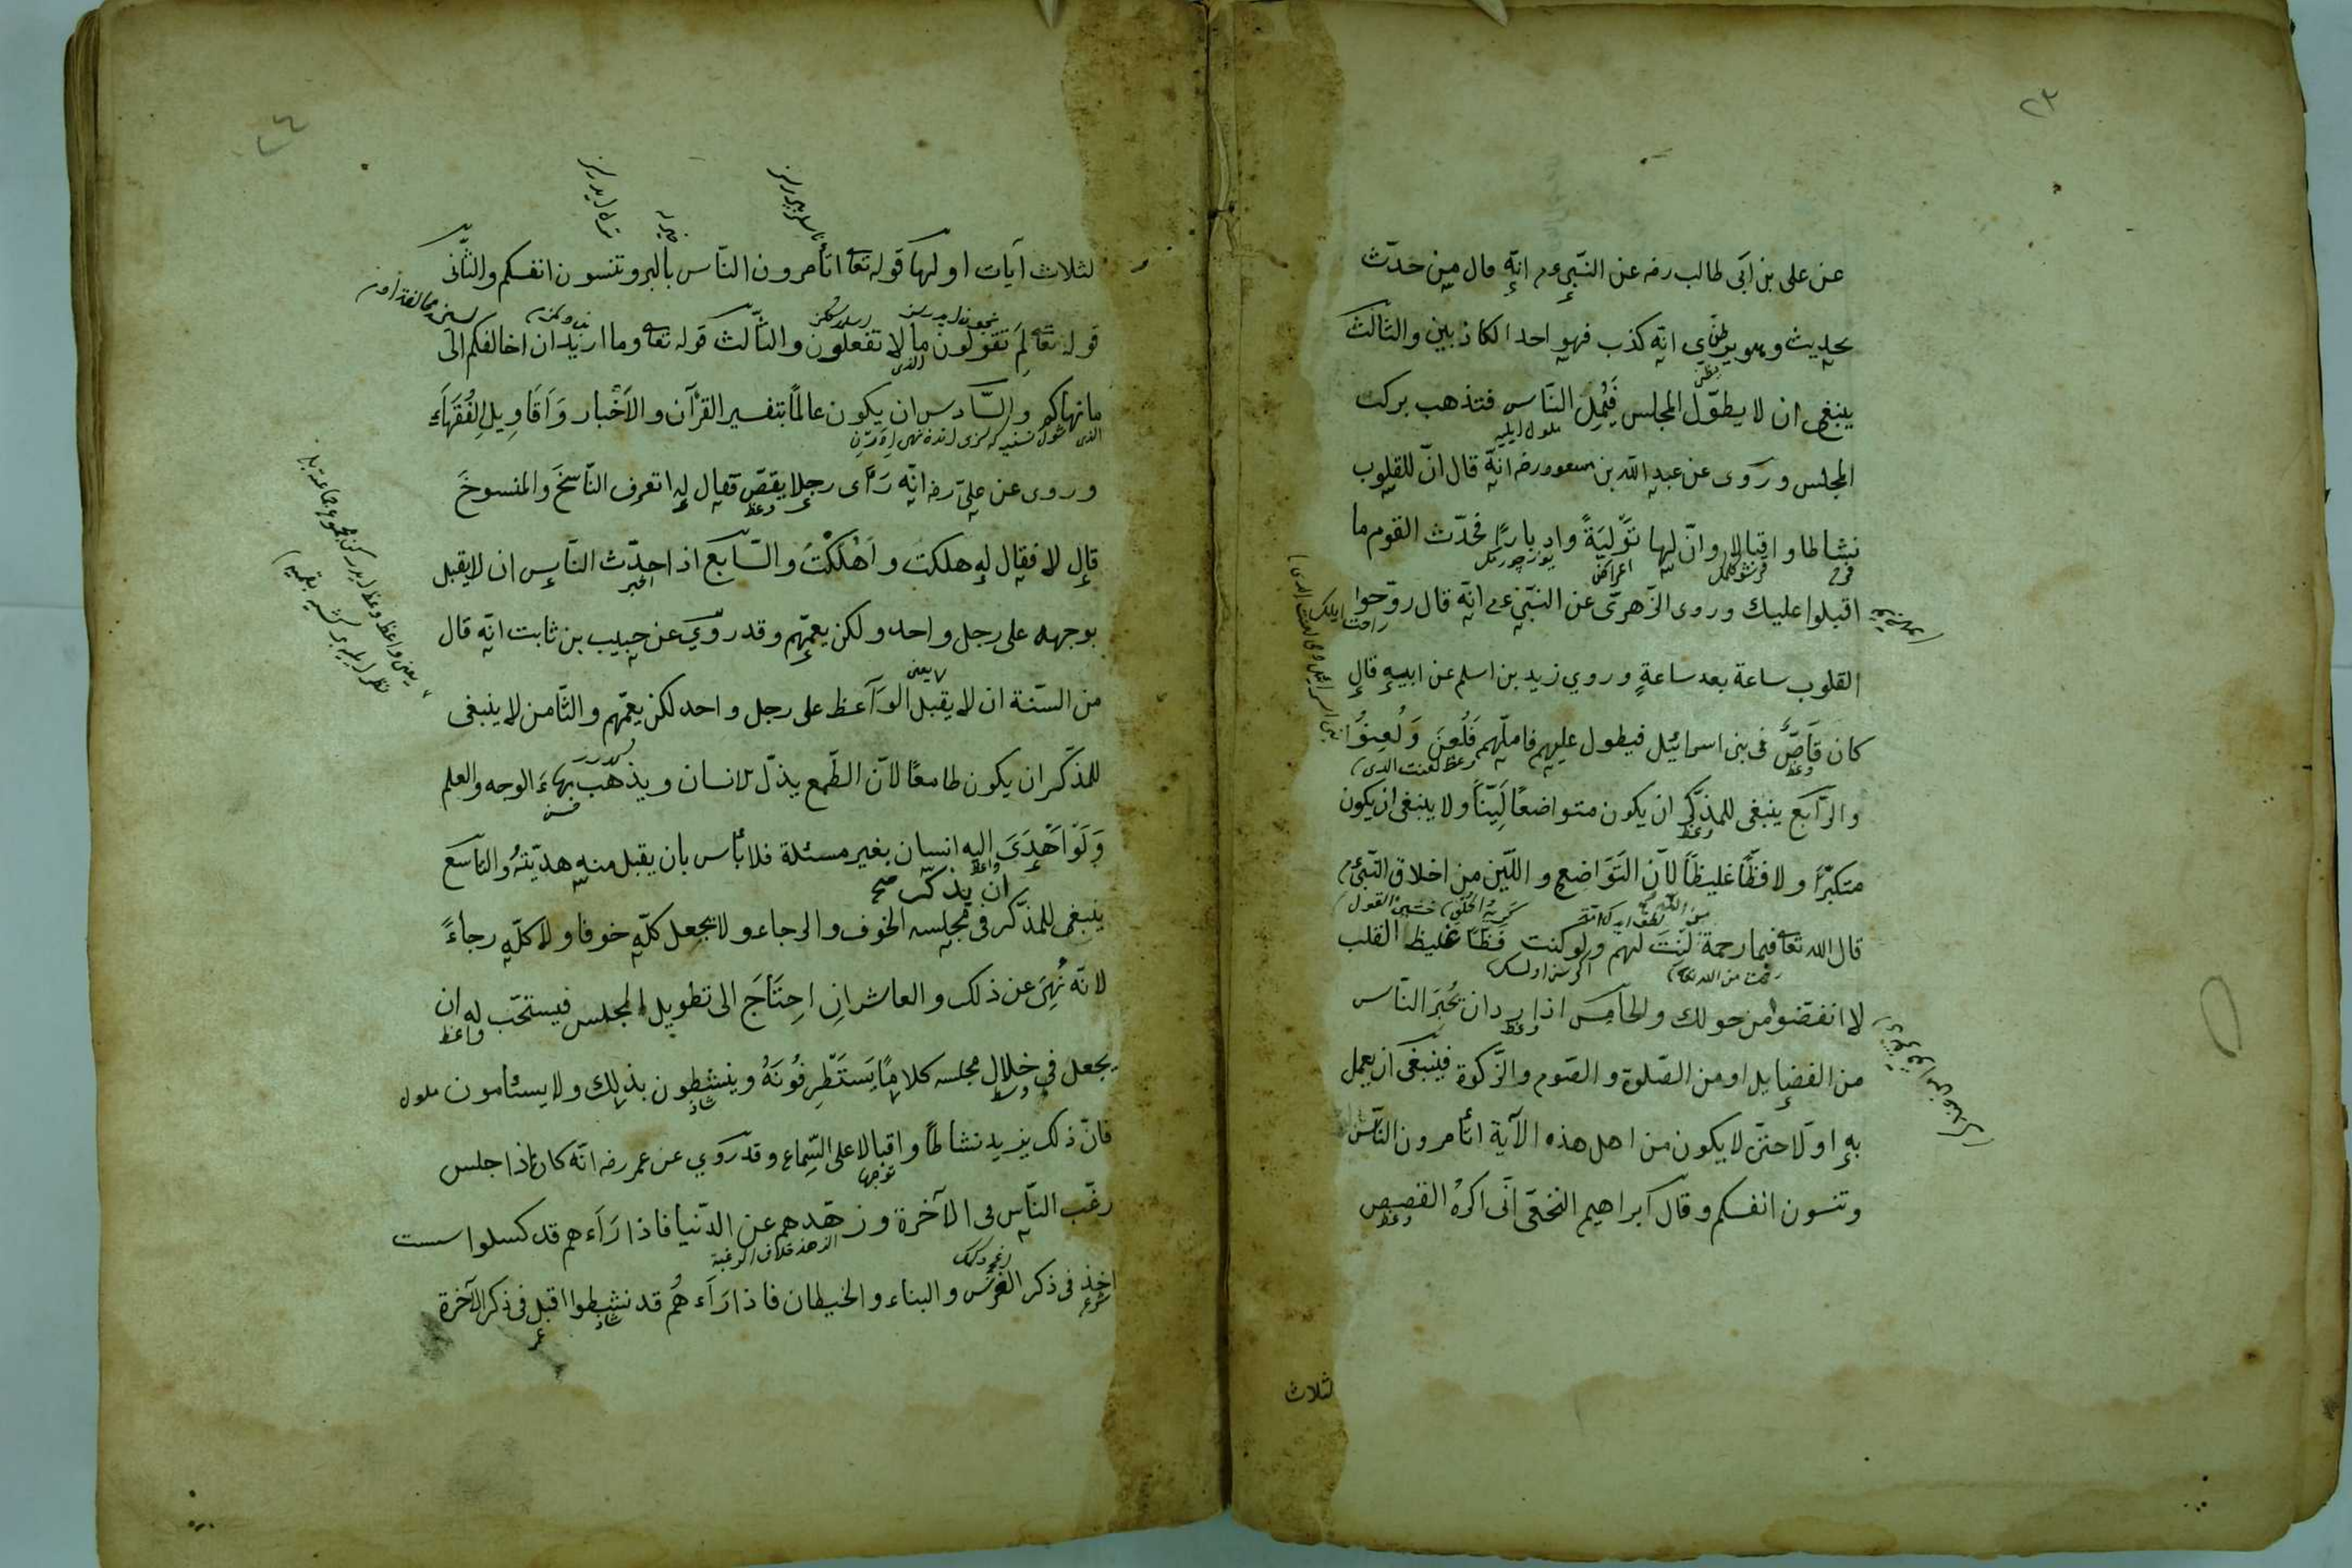 ٢٣
عن على بن ابى طالب رضه عن النّبىءم انّه قال من حدّث
بحديث وهو يظنّ انّه كذب فهو احد الكاذبين والثالث
يظنّ
ينبغى ان لا يطوّل المجلس فَيُمِلّ النّاس فتذهب بركت
ملول ايليه
المجلس وروى عن عبد الله بن مسعود رضه انّه قال انّ للقلوب
نشاطا واقبالا وانّ لها تَوْلِيَةً وادبارًا فحدّث القوم ما
فرح
اقبلوا عليك وروى الزّهرىّ عن النّبىّ عم انّه قال روّحوا
راحت ايلك
القلوب ساعة بعد ساعةٍ وروي زيد بن اسلم عن ابيه قال
كان قَاصٌّ فى بنى اسرائيل فيطول عليهم فاملّهم فَلُعِنَ وَلُعِنُوا
وعظ
والرّابع ينبغى للمذكّر ان يكون متواضعًا لَيِّنًا ولا ينبغى ان يكون
وعظ
متكبّرًا ولا فظًّا غليظًا لانّ التّوَاضع واللّين من اخلاق النّبىّءم
قال الله تعا فبما رحمة لِنْتَ لهم ولو كنت فَظًّا غليظ القلب
رحمت من الله تعا
لا انفضّوا من حولك والخامس اذا اراد ان يُخْبِرَ النّاس
وعظ
من الفضايل او من الصّلوة والصّوم والزّكوة فينبغى ان يعمل
به اوّلا حتّى لا يكون من اهل هذه الآية اتأمرون النّاس
وتنسون انفسكم وقال ابراهيم النخعىّ انّى اكرهُ القصص
وعظ
لثلاث
لثلاث آيات اولها قوله تعا اتأمرون النّاس بالبرّ وتنسون انفسكم والثّانى
قوله تعا لِمَ تقولون ما لا تفعلون والثّالث قوله تعا وما اريد ان اخالفكم الى
الذى
ما نهاكم والسّادس ان يكون عالمًا بتفسير القرآن والاَخْبار وَاَقَاوِيلِ الفُقَهَاء
الذى
وروى عن علىّ رضه انّه رَأى رجلا يقصّ فقال له اتعرف النّاسخَ والمنسوخَ
وعظ
قال لا فقال له هلكت واَهْلَكْتَ والسّابع اذا احدّث النّاس ان لا يقبل
اخبر
بوجهه على رجل واحد ولكن يعمّهم وقد روي عن حبيب بن ثابت انّه قال
يعنى
من السّنة ان لا يقبل الوَآعظ على رجل واحد لكن يعمّهم والثّامن لا ينبغى
للمذكّر ان يكون طامعًا لانّ الطّمع يذلّ لانسان ويذهب بهاءَ الوجه والعلم
وَلَوْ اَهْدَىَ اليه انسان بغير مسئلة فلا بأس بان يقبل منه هديّتهُ والتاسع
واعظ
ان يذكّر صح
ينبغى للمذكّر فى مجلسه الخوف والرجاء ولا يجعل كلّه خوفا ولا كلّه رجاءً
لانّه نُهِىَ عن ذلك والعاشر ان احتَاجَ الى تطويل المجلس فيستحبّ له ان
واعظ
يجعل فى خلال مجلسه كلامًا يَسْتَظْرِفُونَهُ وينشطون بذلك ولا يسئامون ملول
وسط
فانّ ذلك يزيد نشاطًا واقبالا على السّماع وقد روي عن عمر رضه انّه كان اذا جلس
توجها
رغّب النّاس فى الآخرة وزهّدهم عن الدّنيا فاذا رَآَءهم قد كسلوا سست
الزهد خلاف الرغبة
اخذ فى ذكر الغرس والبناء والخيطان فاذا رَآَءهُم قد نشطوا اقبل فى ذكر الآخرة
شرع
عمر